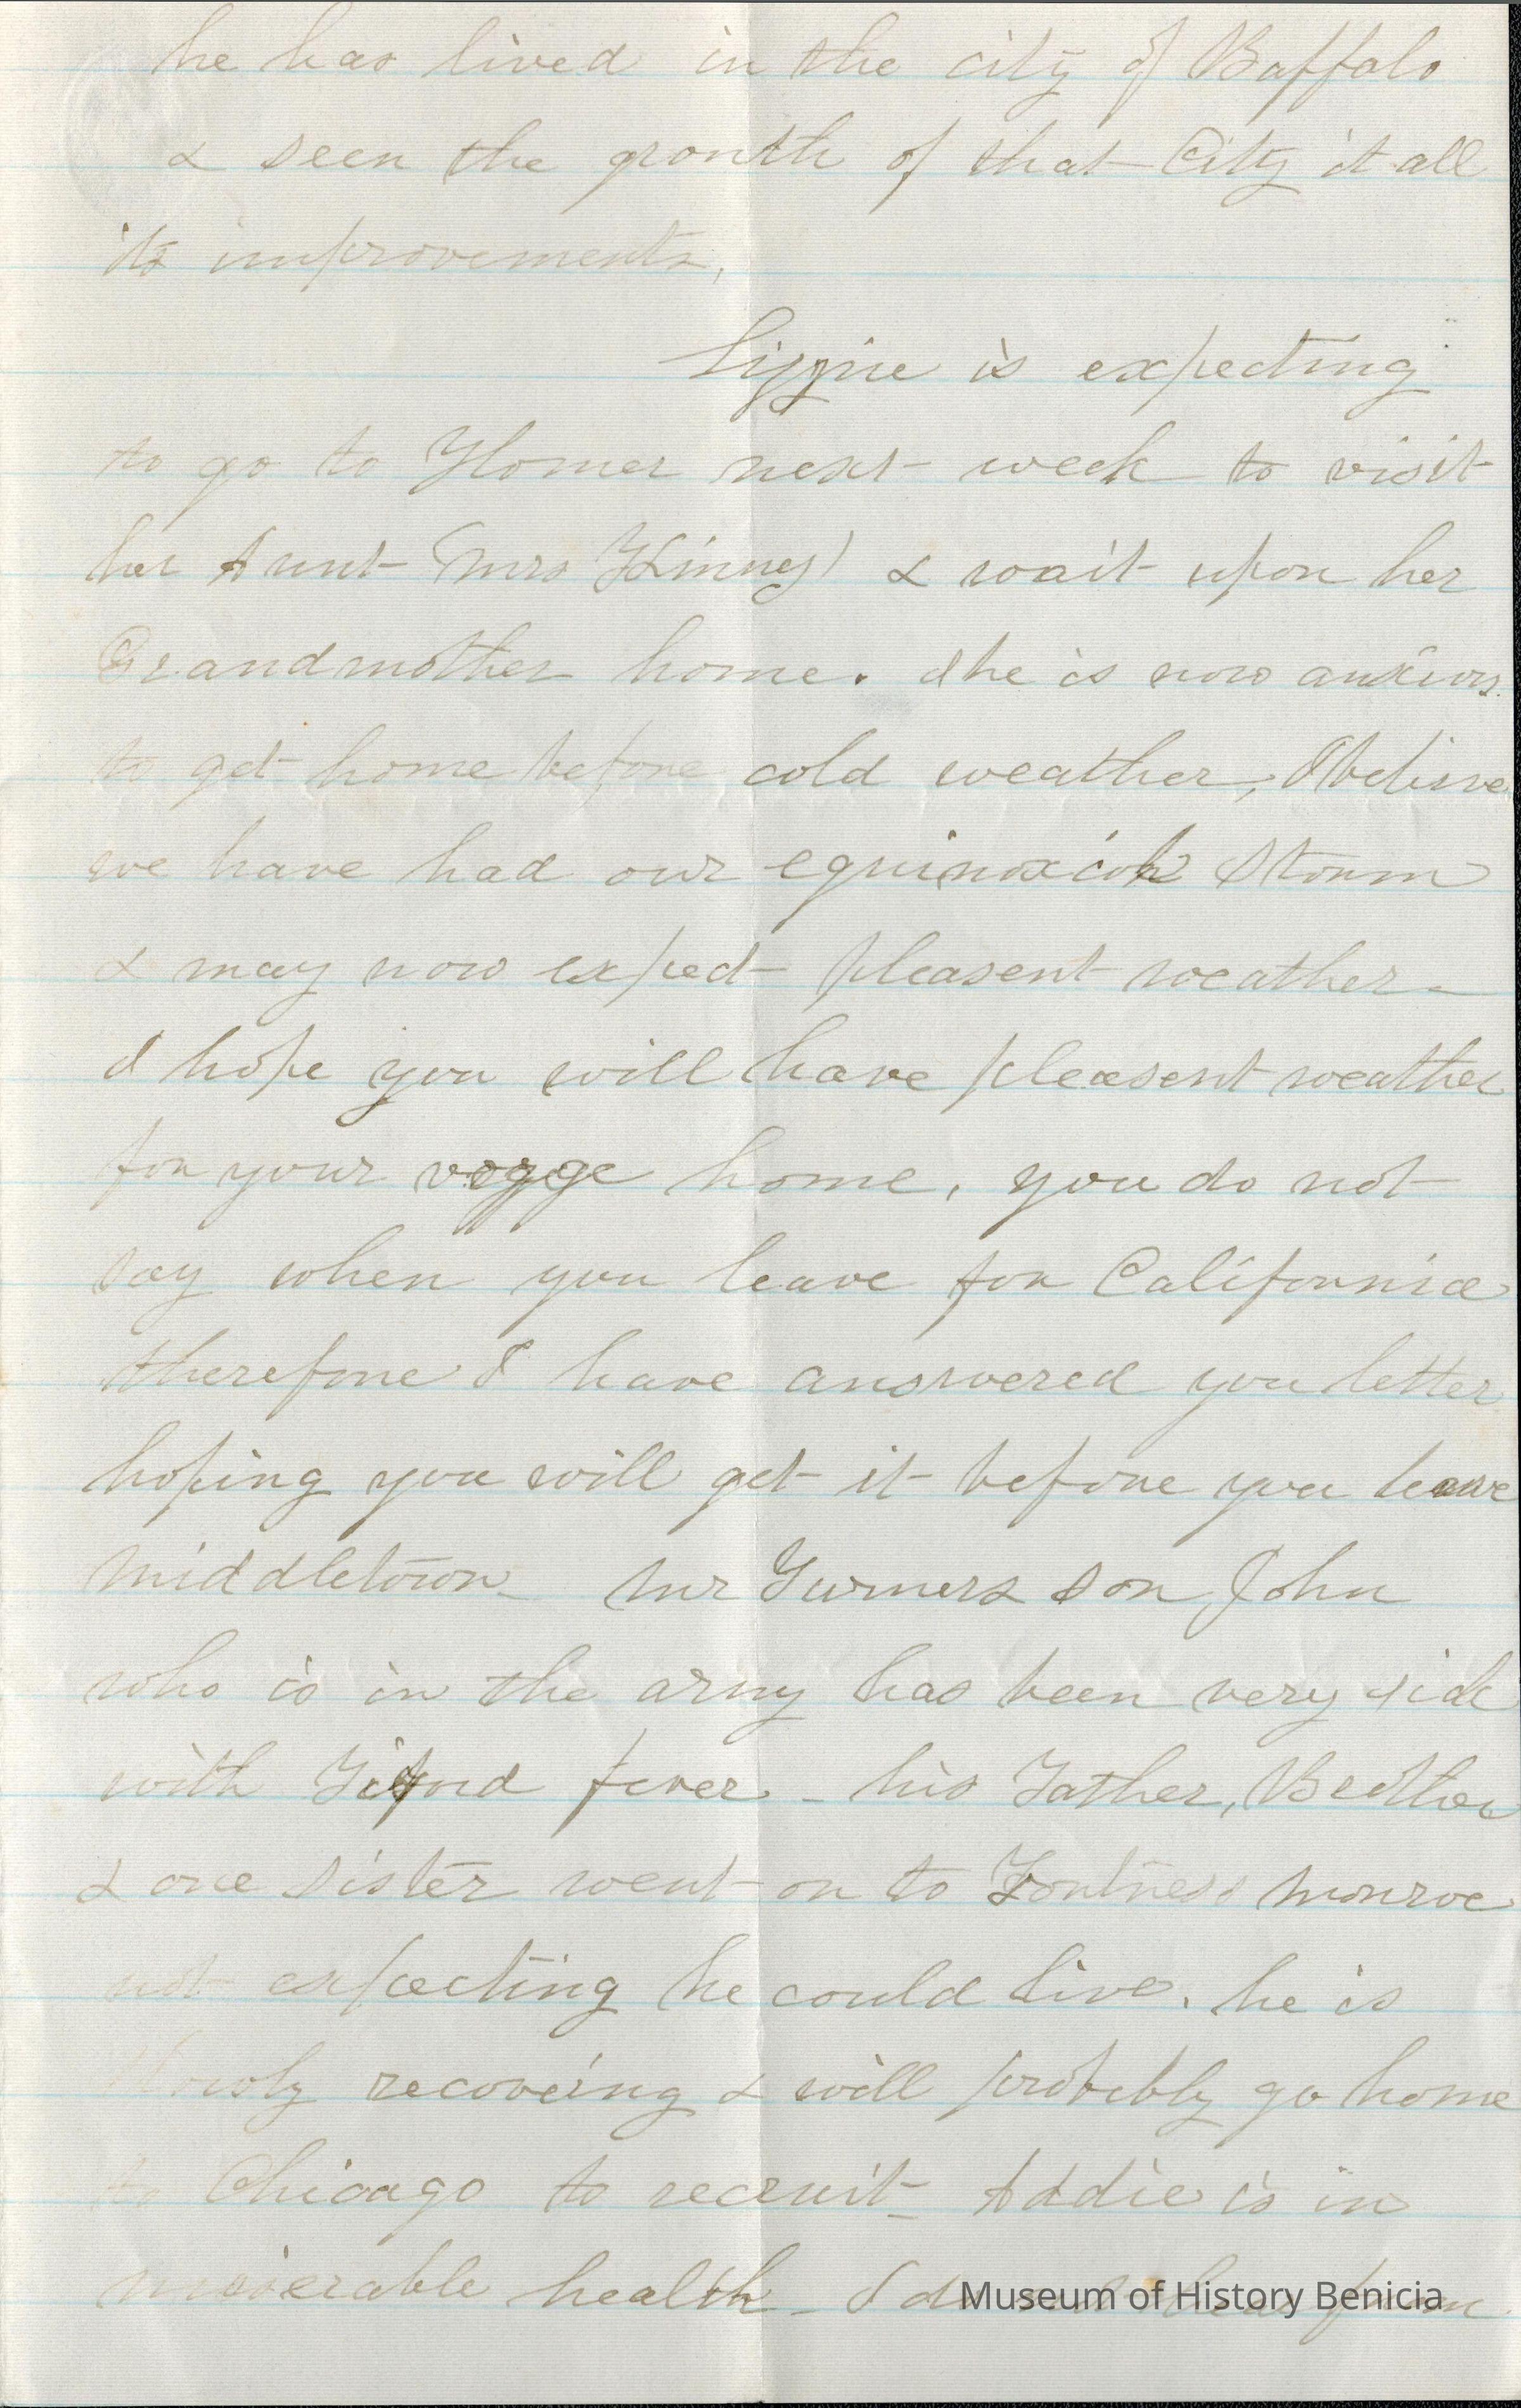 he has lived in the city of Baffalo
& seen the growth of that City it all
its improvements,
Lizzie is expecting
to go to Homer next week to visit
her Aunt (Mrs Kinney) & wait upon her
Grandmother home. She is now anxious
to get home before cold weather, I believe
we have had our Storm
& may now expect pleasent weather -
I hope you will have pleasent weather
for your home, you do not
say when you leave for California
therefore I have answered you letter
hoping you will get it before you leave
Middletown - Mr son John
who is in the army has been very sick
with fever - his Father, Brother
& one sister went on to Fortness Monroe
not expecting he could live. he is
slowly recoveing & will probibly go home
to Chicago to recruit - Addie is in
miserable health - I do not hear from
Museum of History Benicia